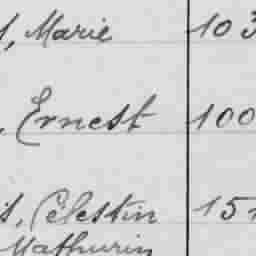 , Marie 103
, Ernest 100
s, Célestin 15
Mathurin